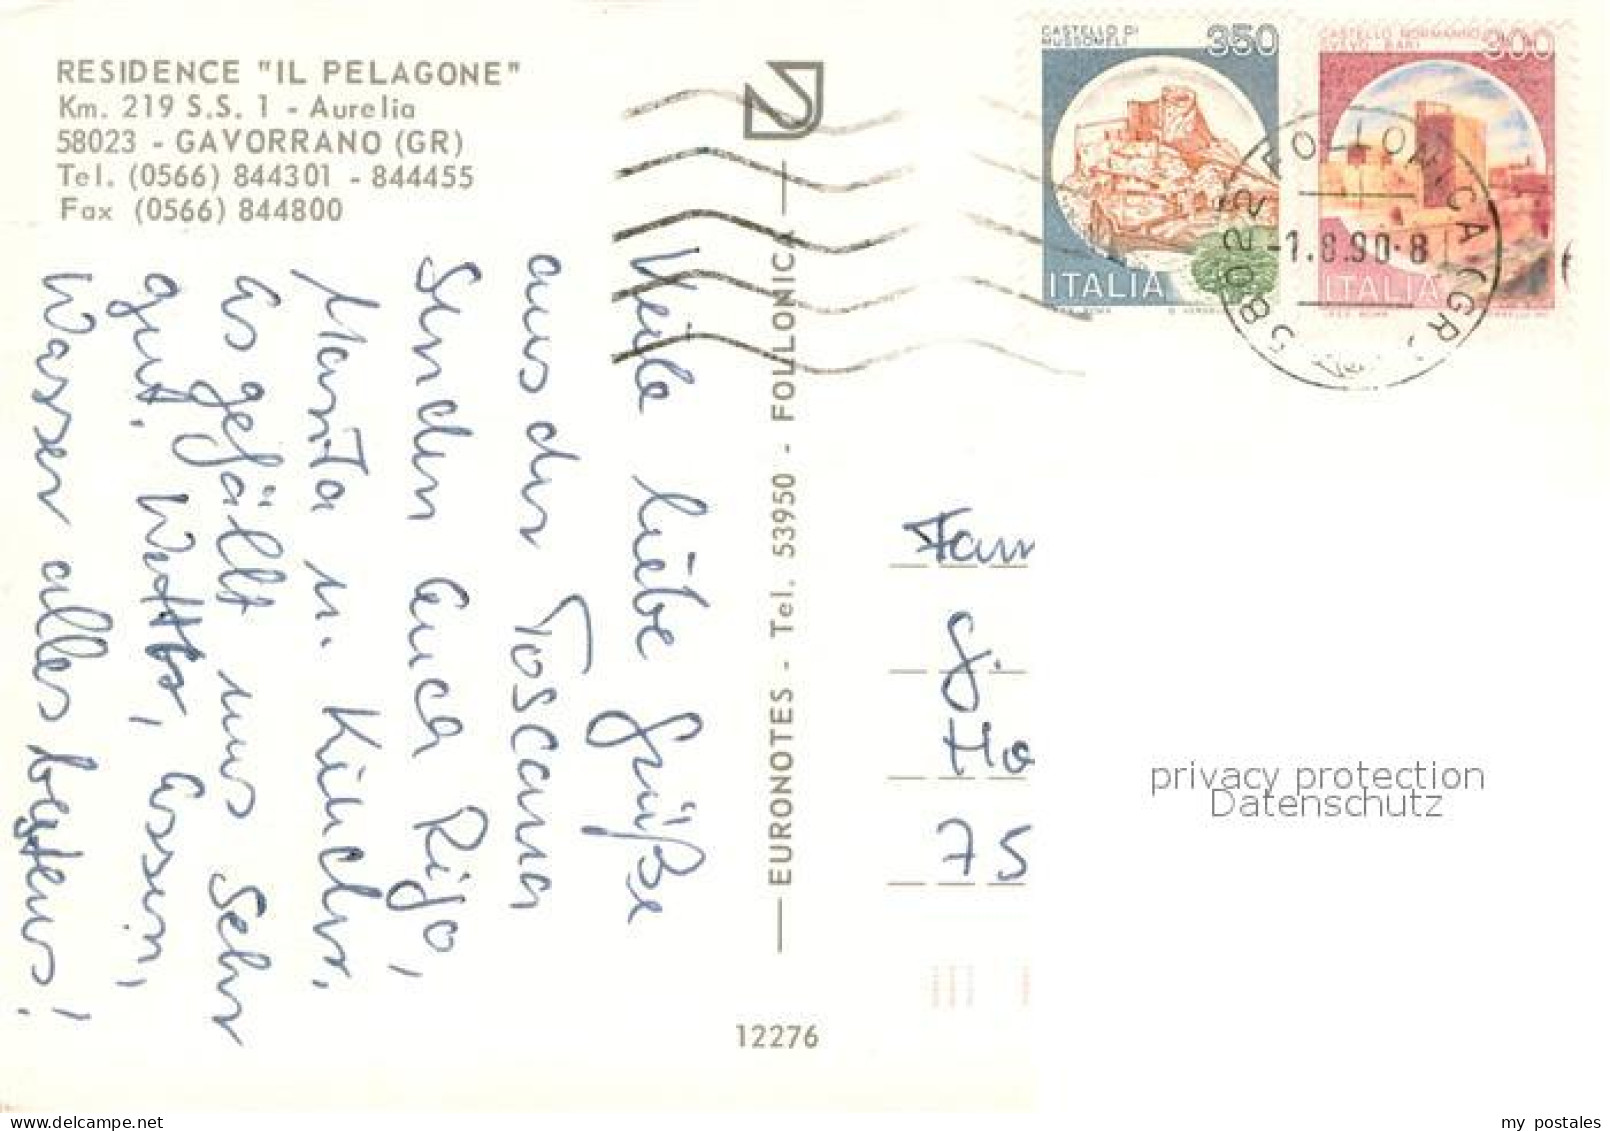 RESIDENCE "IL PELAGONE"
Km. 219 S.S. 1 - Aurelia
58023 - GAVORRANO (GR)
Tel. (0566) 844301 - 844455
Fax (0566) 844800
Viele liebe Grüße
aus der Toscana
senden Euch Rigo,
Marita u. Kinder.
Es gefällt uns sehr
gut. Wetter, Essen,
Wasser alles bestens!
EURONOTES - Tel. 53950 - FOLLONICA
12276
CASTELLO DI
MUSSOMELI
350
ITALIA
CASTELLO NORMANNO
SVEVO BARI
300
ITALIA
58022 FOLLONICA (GR)
-1.8.90-8
Fam
G.
Ho
75
privacy protection
Datenschutz
www.delcampe.net
my_postales